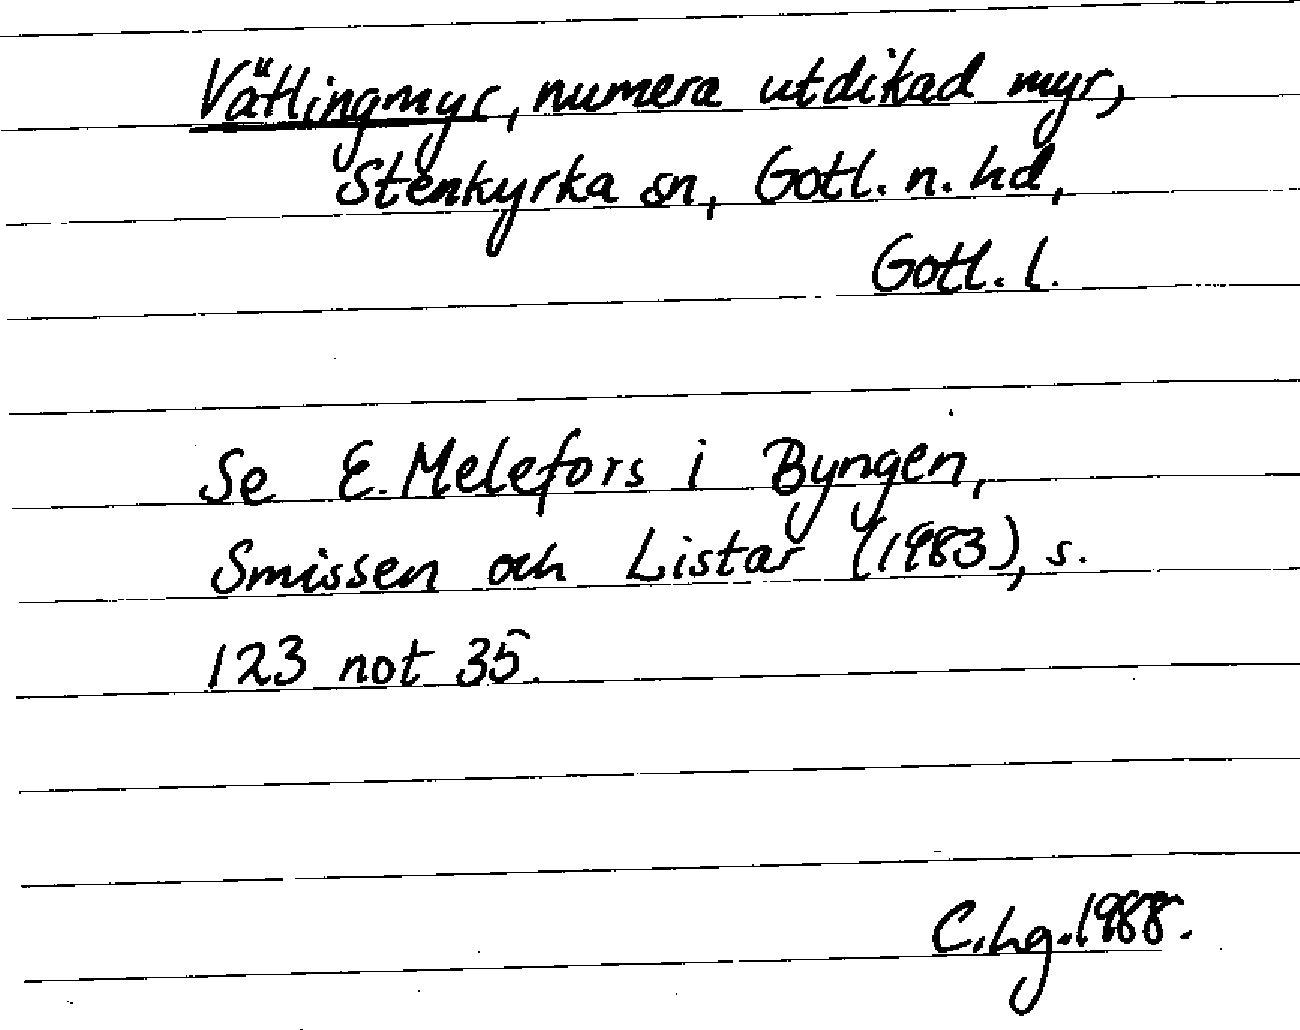 Vätlingmyr, numera utdikad myr,
Stenkyrka sn, Gotl. n. hd,
Gotl. l.
Se E. Melefors i Byngen,
Smissen och Listar (1983), s.
123 not 35.
C.hg.1988.